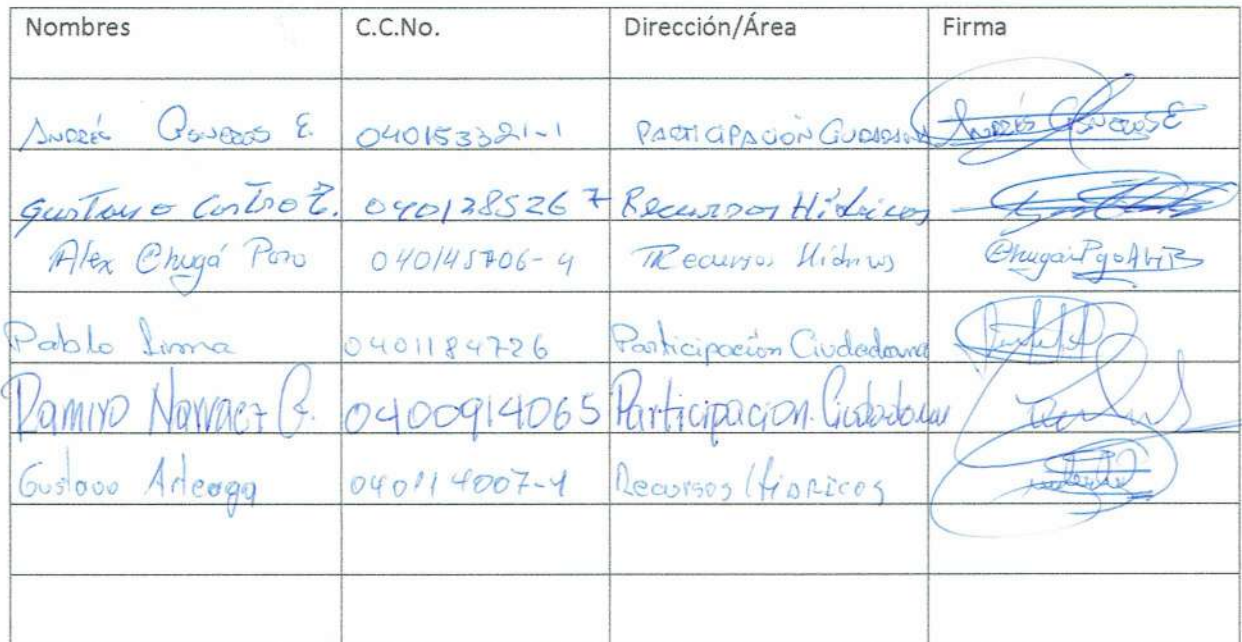 Nombres C.C.No. Dirección/Área Firma
Andrés Cisneros E. 040153321-1 PARTICIPACIÓN CIUDADANA Andrés Cisneros E
Gustavo Castro 0401285267 Recursos Hídricos
Alex Chugá Pozo 040145706-4 Recursos Hídricos
Pablo 0401184726 Participación Ciudadana
Ramiro Narvaez 0400914065 Participacion Ciudadana
Gustavo Arteaga 040114007-4 Recursos Hidricos